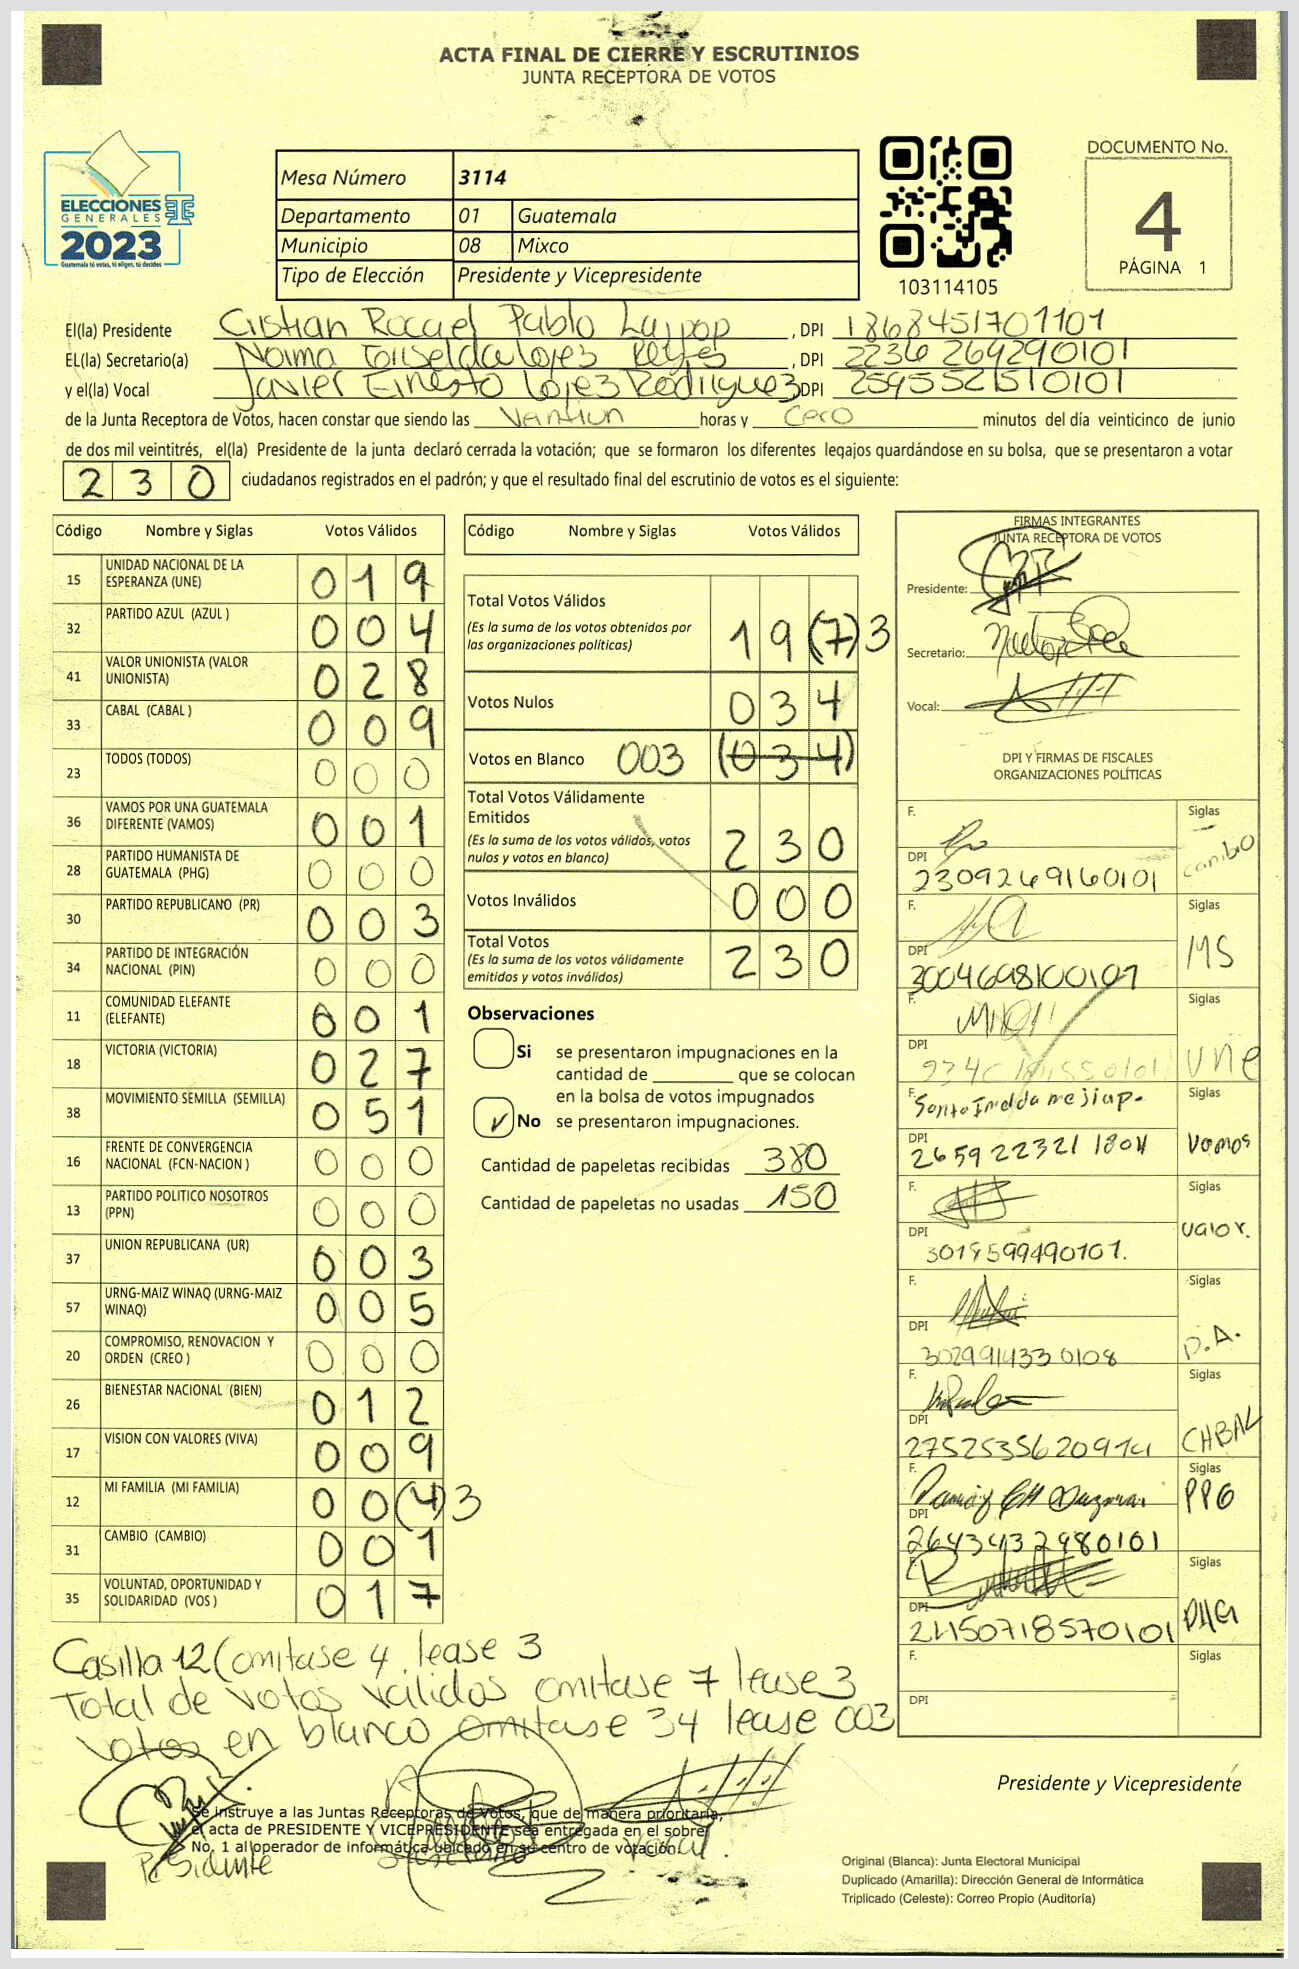 ACTA FINAL DE CIERRE Y ESCRUTINIOS
JUNTA RECEPTORA DE VOTOS
ELECCIONES
GENERALES
2023
Guatemala tú votas, tú eliges, tú decides
Mesa Número 3114
Departamento 01 Guatemala
Municipio 08 Mixco
Tipo de Elección Presidente y Vicepresidente
103114105
DOCUMENTO No.
4
PÁGINA 1
El(la) Presidente Cristian Rocael Pablo , DPI 1868451701101
EL(la) Secretario(a) Norma Griselda Lopez Reyes , DPI 2236264290101
y el(la) Vocal Javier Ernesto López Rodriguez DPI 2595521510101
de la Junta Receptora de Votos, hacen constar que siendo las Ventiun horas y Cero minutos del día veinticinco de junio
de dos mil veintitrés, el(la) Presidente de la junta declaró cerrada la votación; que se formaron los diferentes legajos guardándose en su bolsa, que se presentaron a votar
230 ciudadanos registrados en el padrón; y que el resultado final del escrutinio de votos es el siguiente:
Código Nombre y Siglas Votos Válidos
15 UNIDAD NACIONAL DE LA ESPERANZA (UNE) 019
32 PARTIDO AZUL (AZUL ) 004
41 VALOR UNIONISTA (VALOR UNIONISTA) 028
33 CABAL (CABAL ) 009
23 TODOS (TODOS) 000
36 VAMOS POR UNA GUATEMALA DIFERENTE (VAMOS) 001
28 PARTIDO HUMANISTA DE GUATEMALA (PHG) 000
30 PARTIDO REPUBLICANO (PR) 003
34 PARTIDO DE INTEGRACIÓN NACIONAL (PIN) 000
11 COMUNIDAD ELEFANTE (ELEFANTE) 001
18 VICTORIA (VICTORIA) 027
38 MOVIMIENTO SEMILLA (SEMILLA) 051
16 FRENTE DE CONVERGENCIA NACIONAL (FCN-NACION ) 000
13 PARTIDO POLITICO NOSOTROS (PPN) 000
37 UNION REPUBLICANA (UR) 003
57 URNG-MAIZ WINAQ (URNG-MAIZ WINAQ) 005
20 COMPROMISO, RENOVACION Y ORDEN (CREO ) 000
26 BIENESTAR NACIONAL (BIEN) 012
17 VISION CON VALORES (VIVA) 009
12 MI FAMILIA (MI FAMILIA) 00(4)3
31 CAMBIO (CAMBIO) 001
35 VOLUNTAD, OPORTUNIDAD Y SOLIDARIDAD (VOS ) 017
Código Nombre y Siglas Votos Válidos
Total Votos Válidos 19(7)3
(Es la suma de los votos obtenidos por las organizaciones políticas)
Votos Nulos 034
Votos en Blanco 003 (034)
Total Votos Válidamente Emitidos 230
(Es la suma de los votos válidos, votos nulos y votos en blanco)
Votos Inválidos 000
Total Votos 230
(Es la suma de los votos válidamente emitidos y votos inválidos)
Observaciones
Si se presentaron impugnaciones en la
cantidad de ________ que se colocan
en la bolsa de votos impugnados
No se presentaron impugnaciones.
Cantidad de papeletas recibidas 380
Cantidad de papeletas no usadas 150
FIRMAS INTEGRANTES
JUNTA RECEPTORA DE VOTOS
Presidente:
Secretario:
Vocal:
DPI Y FIRMAS DE FISCALES
ORGANIZACIONES POLÍTICAS
F. Siglas
DPI 2309269160101 cambio
F. Siglas
DPI 3004698100101 MS
F. Siglas
DPI UNE
F. Siglas
DPI 2659223211804 Vamos
F. Siglas
DPI 3018599490101. valor.
F. Siglas
DPI 3029914330108 P.A.
F. Siglas
DPI CABAL
F. Siglas
DPI 2643432980101 PPG
F. Siglas
DPI 2450718570101 PHG
F. Siglas
DPI
Casilla 12 (omitase 4, lease 3
Total de votos válidos omitase 7 lease 3
votos en blanco omitase 34 lease 003
Presidente y Vicepresidente
Se instruye a las Juntas Receptoras de Votos, que de manera prioritaria,
el acta de PRESIDENTE Y VICEPRESIDENTE sea entregada en el sobre
No. 1 al operador de informática ubicado en su centro de votación.
Presidente Secretario Vocal.
Original (Blanca): Junta Electoral Municipal
Duplicado (Amarilla): Dirección General de Informática
Triplicado (Celeste): Correo Propio (Auditoría)